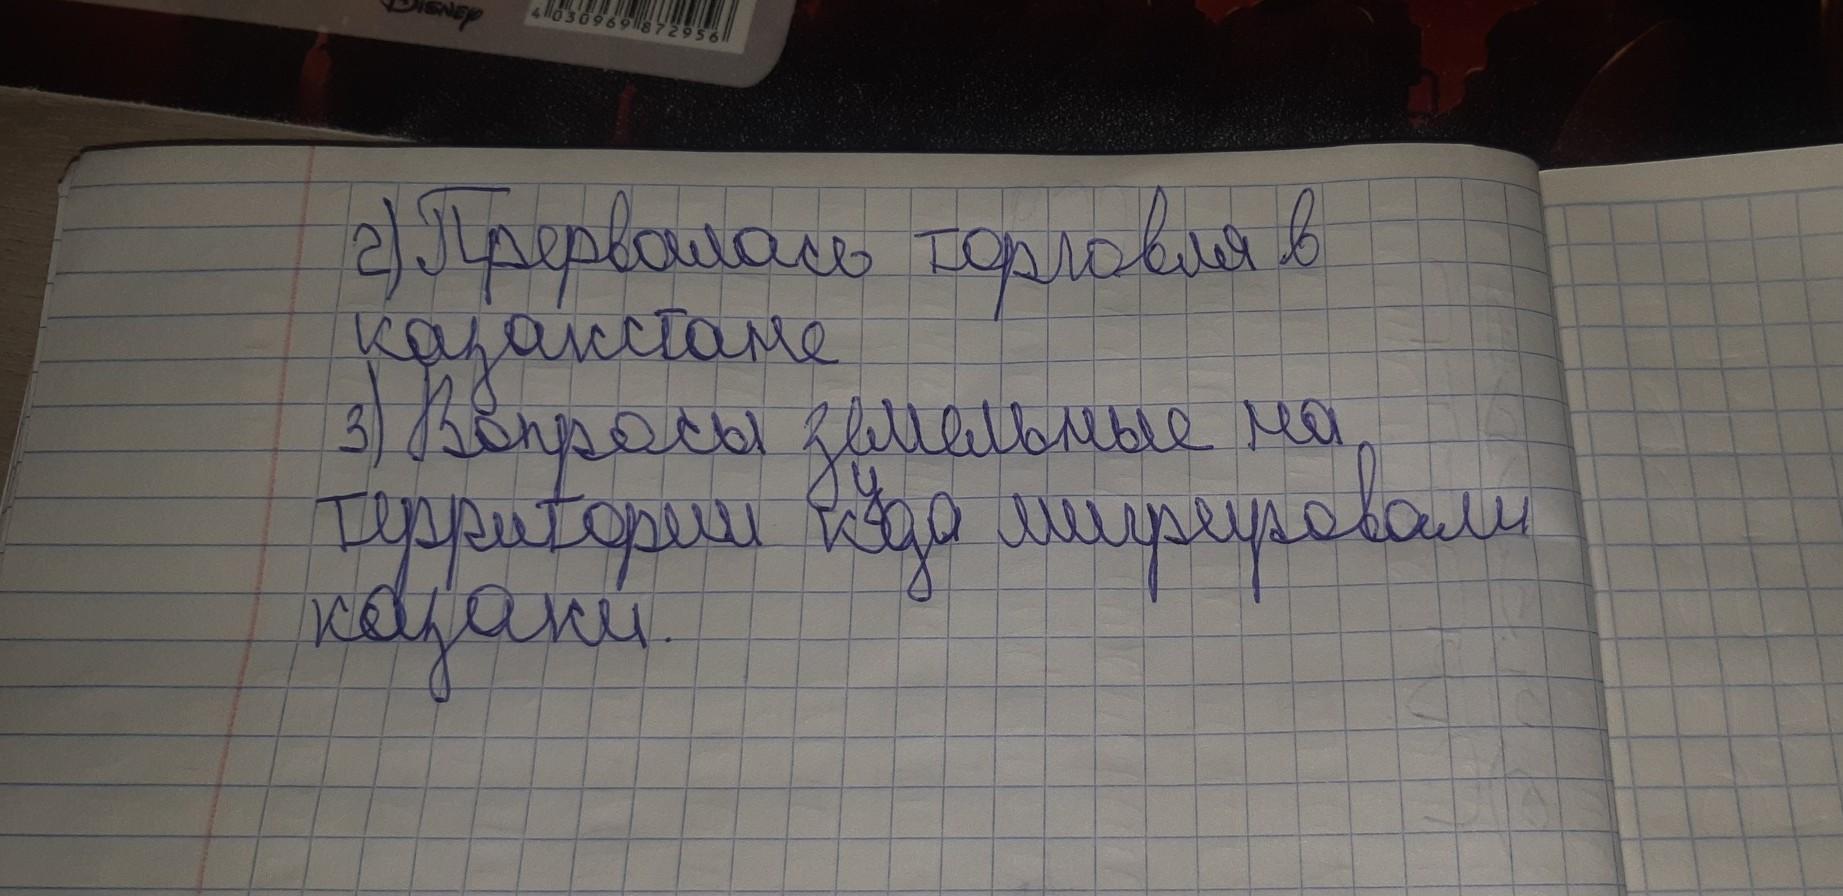 DISNEY
4 030969 872956
2) Прервалась торговля в
казакстане
3) Вопросы земельные на
территории куда мигрировали
казаки.